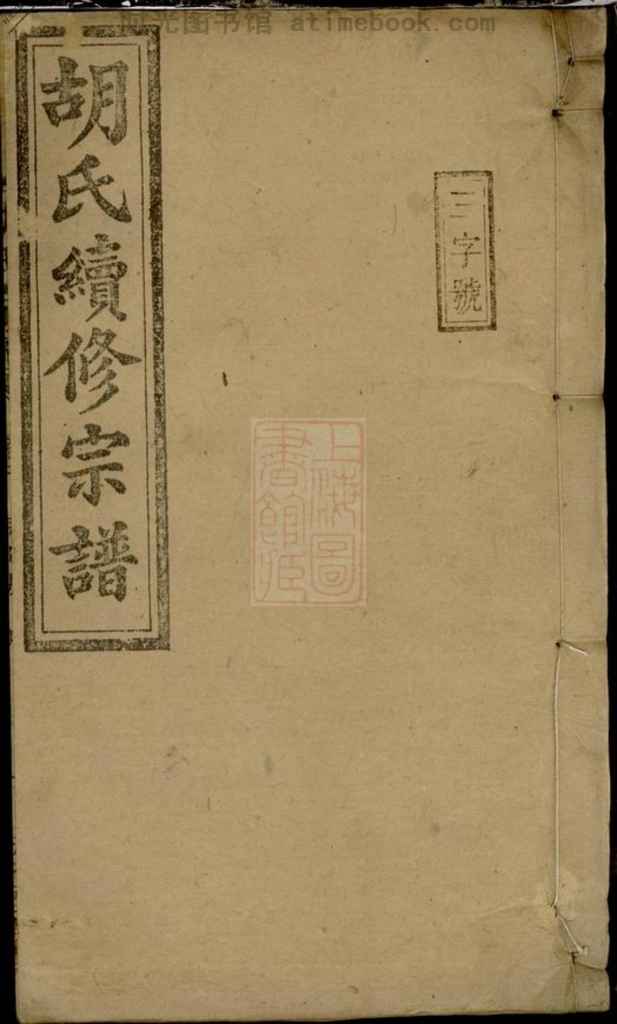 时光图书馆 atimebook.com
三字號
胡氏續修宗譜
上海圖
書館藏